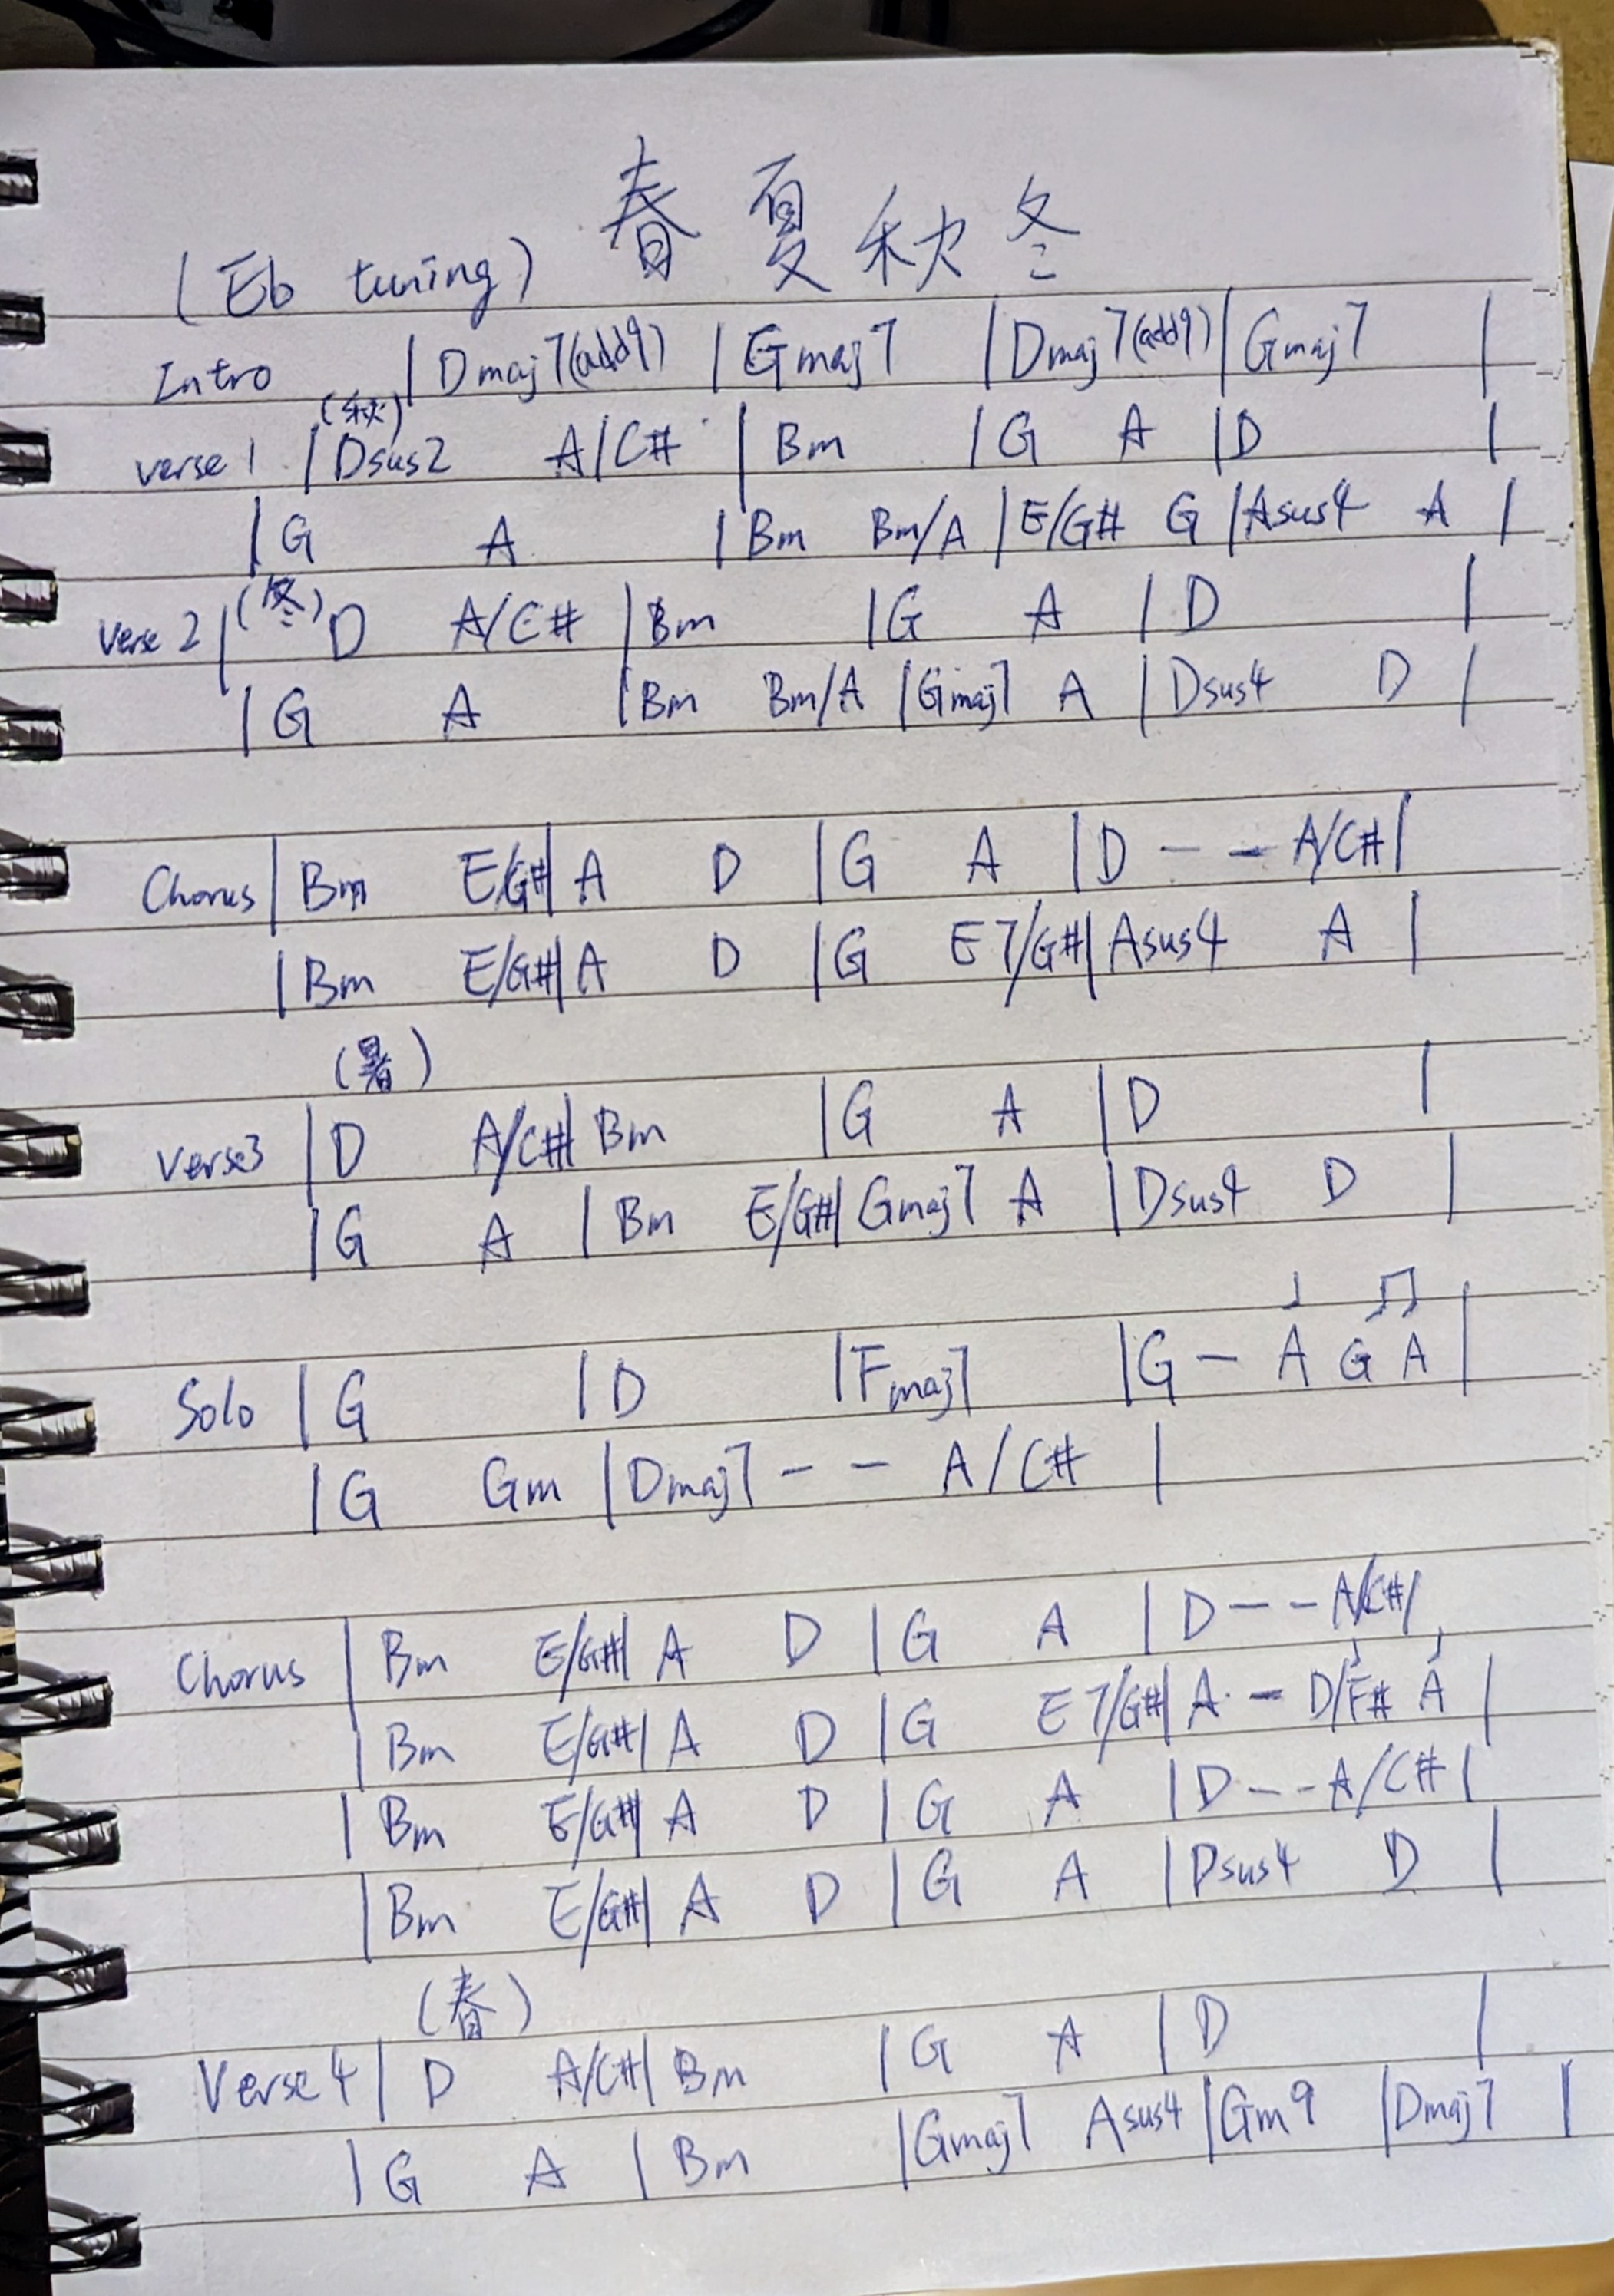 春夏秋冬
(Eb tuning)
Intro |Dmaj7(add9) |Gmaj7 |Dmaj7(add9)|Gmaj7 |
(秋)
verse 1 |Dsus2 A/C# |Bm |G A |D |
|G A |Bm Bm/A |E/G# G |Asus4 A |
Verse 2 |(冬) D A/C# |Bm |G A |D |
|G A |Bm Bm/A |Gmaj7 A |Dsus4 D |
Chorus |Bm E/G#|A D |G A |D - - A/C#|
|Bm E/G#|A D |G E7/G#|Asus4 A |
(暑)
Verse3 |D A/C#|Bm |G A |D |
|G A |Bm E/G#|Gmaj7 A |Dsus4 D |
♩ ♫
Solo |G |D |Fmaj7 |G - A G A |
|G Gm |Dmaj7 - - A/C# |
Chorus |Bm E/G#|A D |G A |D - - A/C#|
♩ ♩
|Bm E/G#|A D |G E7/G#|A - D/F# A |
|Bm E/G#|A D |G A |D - - A/C#|
|Bm E/G#|A D |G A |Dsus4 D |
(春)
Verse 4 |D A/C#|Bm |G A |D |
|G A |Bm |Gmaj7 Asus4 |Gm9 |Dmaj7 |